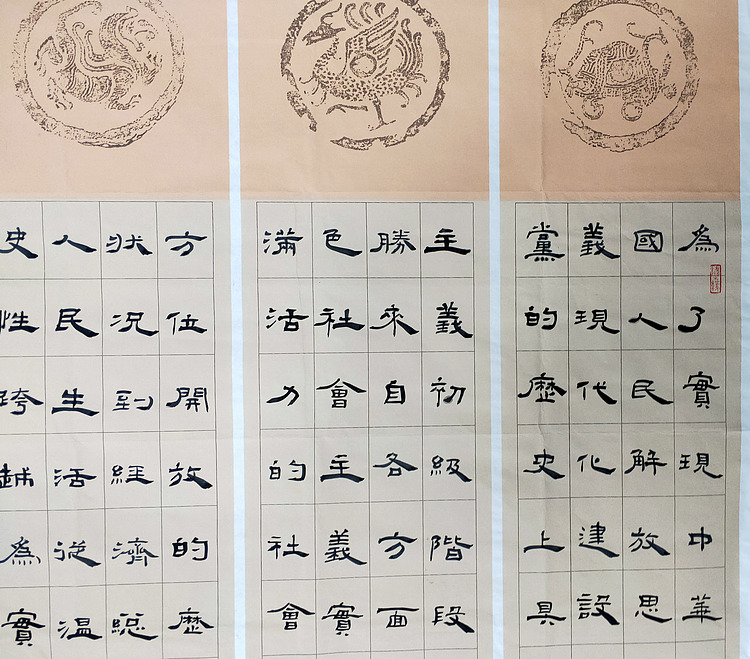 為了實現中華
國人民解放思
義現代化建設
黨的歷史上具
主義初級階段
勝來自各方面
色社會主義實
滿活力的社會
方位開放的歷
狀況到經濟總
人民生活從溫
史性跨越為實